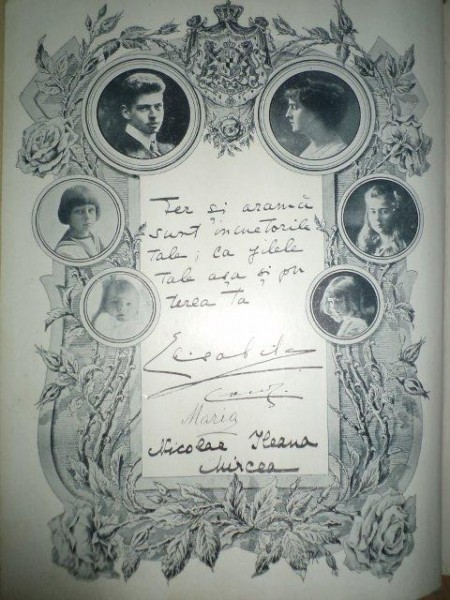 Fer și aramă
sunt încuetorile
tale; ca zilele
tale așa și pu
terea ta
Elisabeta
Carol
Maria
Nicolae Ileana
Mircea